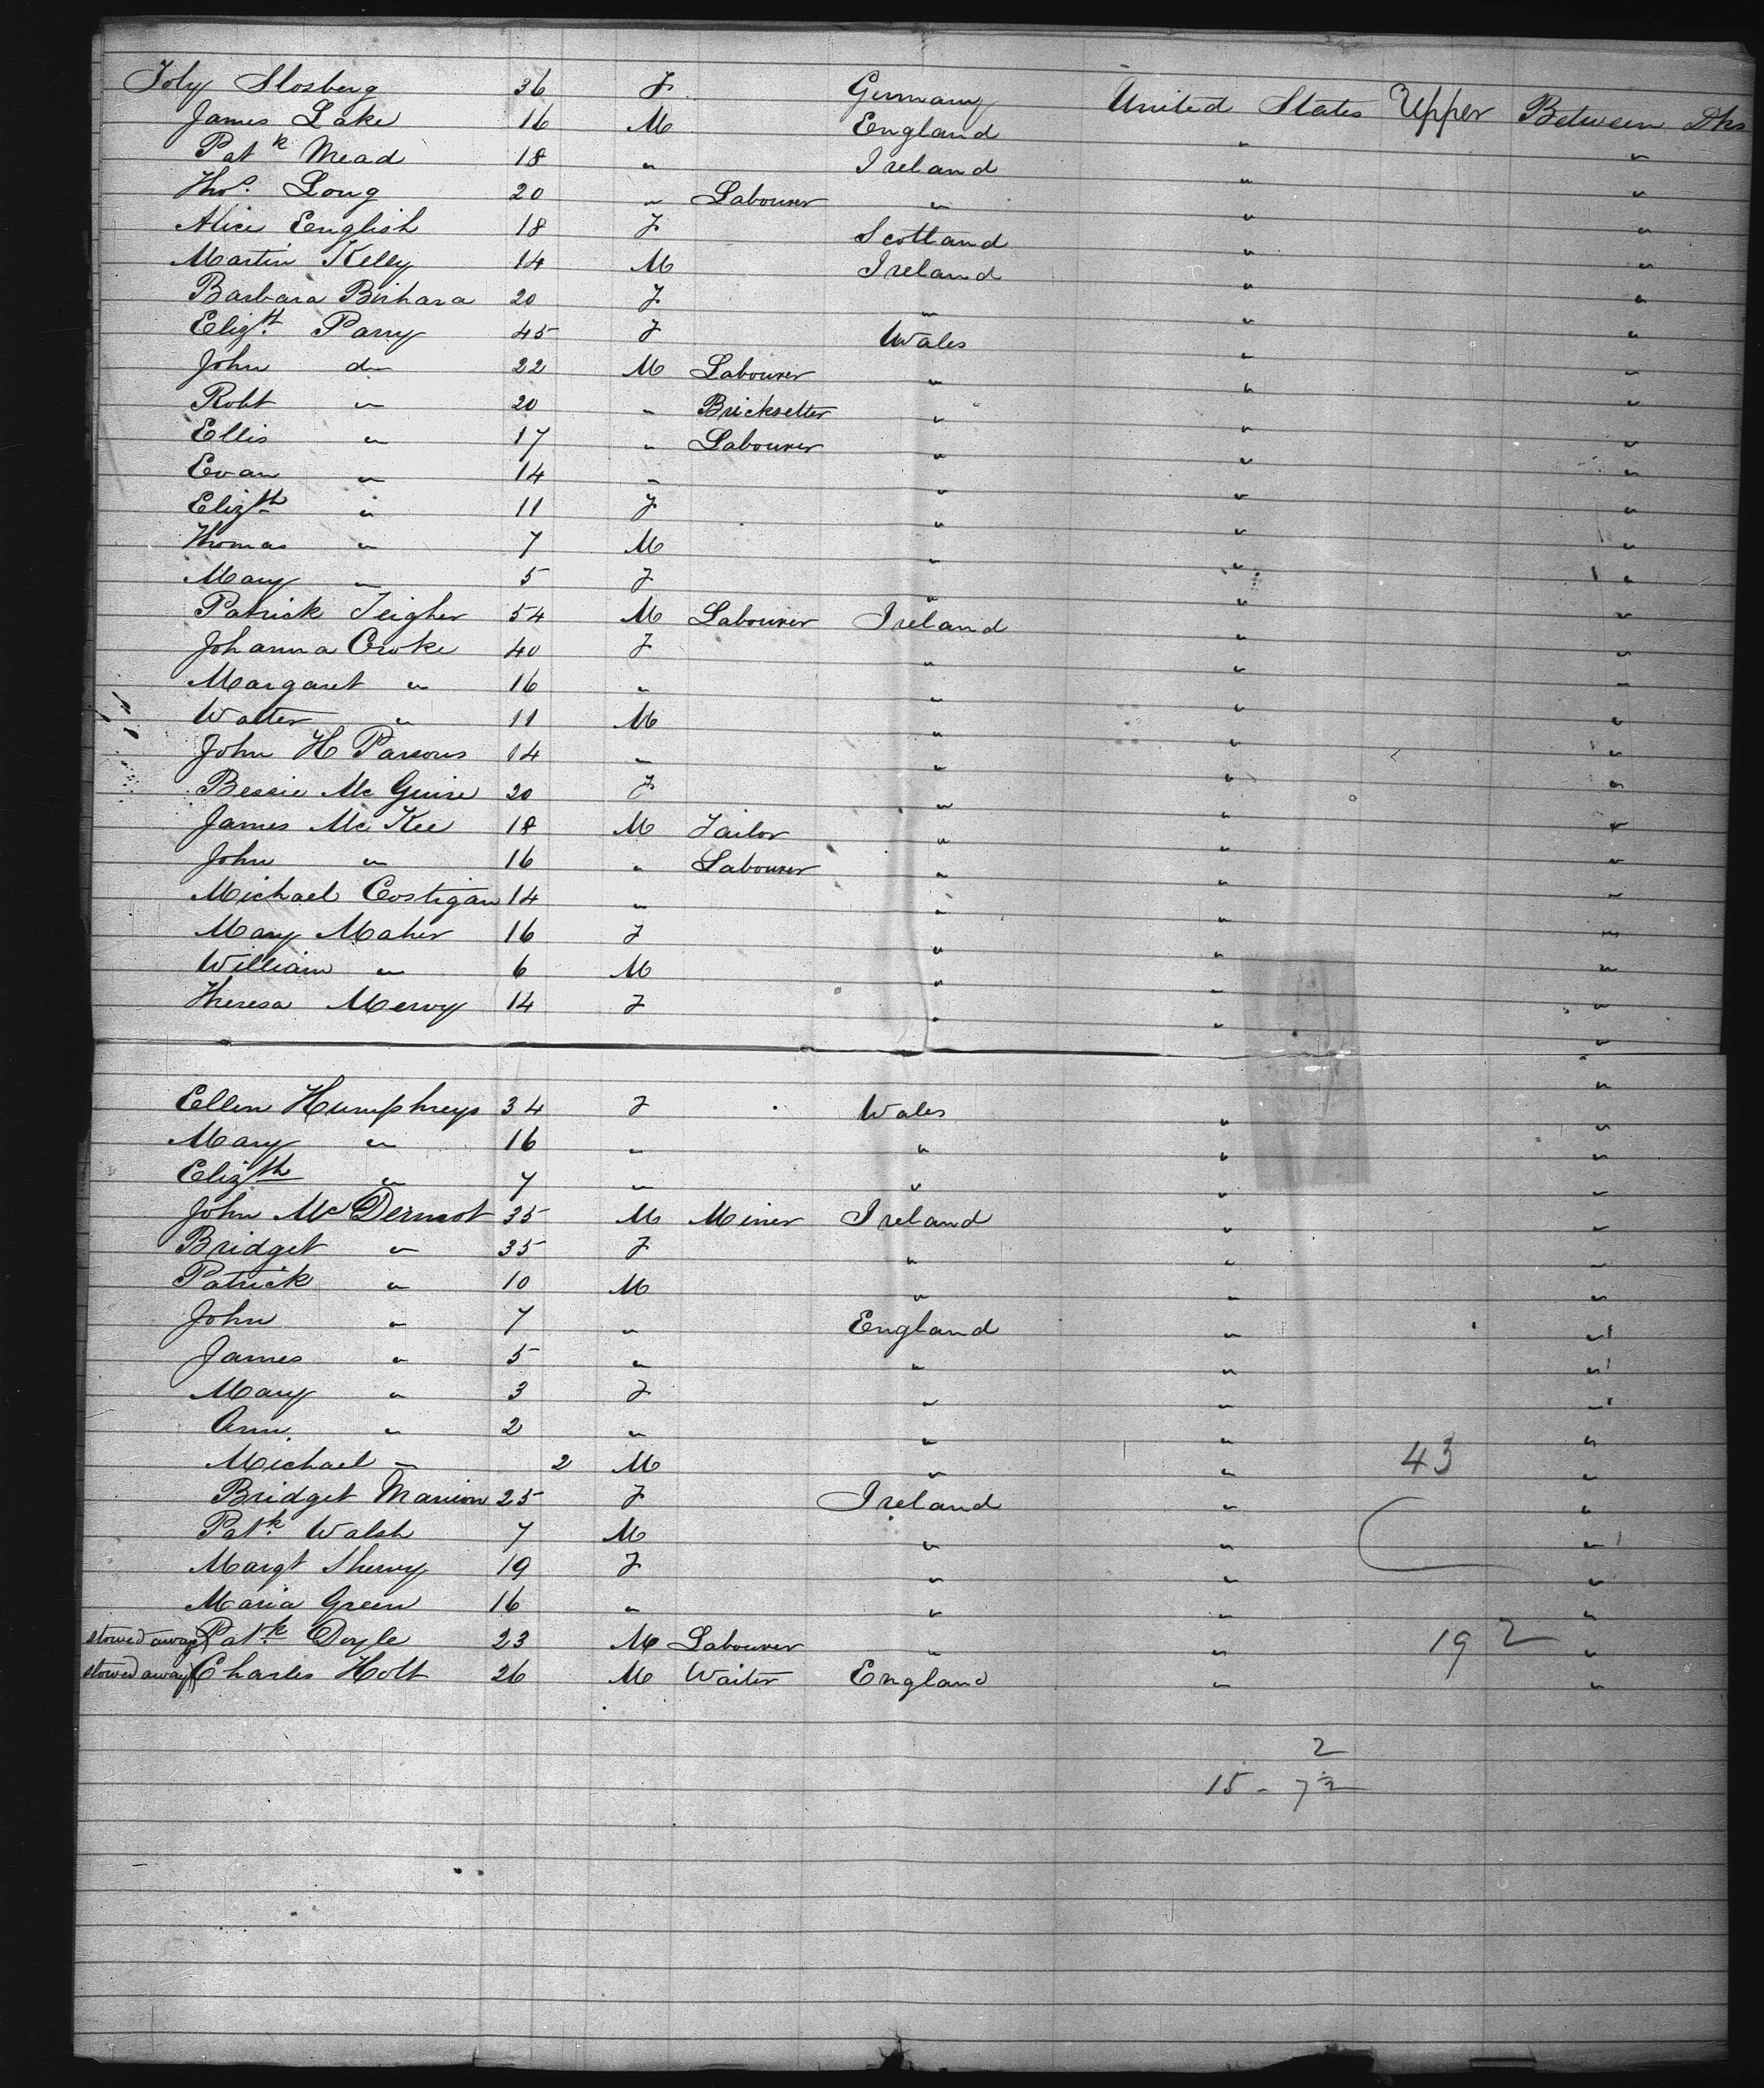 Toby Slosberg 36 F Germany United States Upper Between Dks
James Lake 16 M England " "
Patk Mead 18 " Ireland " "
Thos. Long 20 " Labourer " " "
Alice English 18 F Scotland " "
Martin Kelly 14 M Ireland " "
Barbara 20 F " " "
Elizth Parry 45 F Wales " "
John do 22 M Labourer " " "
Robt " 20 " Bricksetter " " "
Ellis " 17 " Labourer " " "
Evan " 14 " " " "
Elizth " 11 F " " "
Thomas " 7 M " " "
Mary " 5 F " " "
Patrick Teigher 54 M Labourer Ireland " "
Johanna Croke 40 F " " "
Margaret " 16 " " " "
Walter " 11 M " " "
John H Parsons 14 " " " "
Bessie McGuire 20 F " " "
James McKee 18 M Tailor " " "
John " 16 " Labourer " " "
Michael Costigan 14 " " " "
Mary Maher 16 F " " "
William " 6 M " " "
Theresa 14 F " " "
Ellen Humphreys 34 F Wales " "
Mary " 16 " " " "
Elizth " 7 " " " "
John McDermot 35 M Miner Ireland " "
Bridget " 35 F " " "
Patrick " 10 M " " "
John " 7 " England " "
James " 5 " " " "
Mary " 3 F " " "
Ann. " 2 " " " "
Michael " 2 M " " 43 "
Bridget Manion 25 F Ireland " "
Patk. Walsh 7 M " " "
Margt 19 F " " "
Maria Green 16 " " " "
stowed away Patk Doyle 23 M Labourer " " 19 2 "
stowed away Charles Holt 26 M Waiter England " "
2
15 - 7